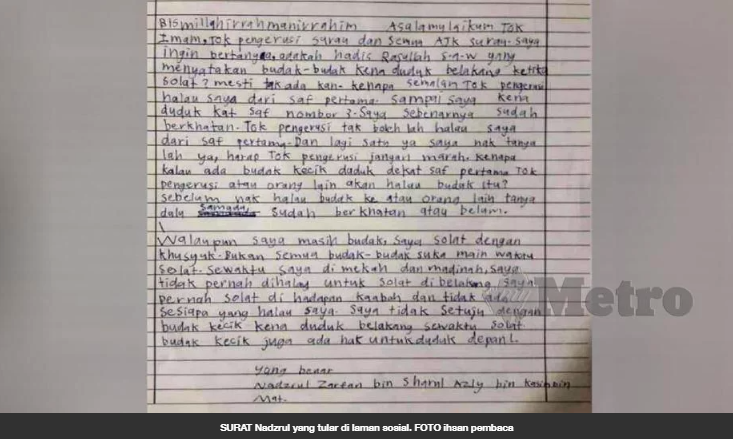 Bismillahirrahmanirrahim Asalamulaikum Tok
Imam, Tok pengerusi surau dan semua AJK surau. Saya
ingin bertanya, adakah hadis Rasullah s.a.w yang
menyatakan budak-budak kena duduk belakang ketika
solat? mesti tak ada kan. kenapa semalam Tok pengerusi
halau saya dari saf pertama. sampai saya kena
duduk kat saf nombor 3. Saya sebenarnya sudah
berkhatan. Tok pengerusi tak boleh lah halau saya
dari saf pertama. Dan lagi satu ya saya nak tanya
lah ya, harap Tok pengerusi jangan marah. kenapa
kalau ada budak kecik duduk dekat saf pertama Tok
pengerusi atau orang lain akan halau budak itu?
sebelum nak halau budak ke atau orang lain tanya
dulu samada sudah berkhatan atau belum.
Walaupun saya masih budak, saya solat dengan
khusyuk. Bukan semua budak-budak suka main waktu
solat. sewaktu saya di mekah dan madinah, saya
tidak pernah dihalau untuk solat di belakang. saya
pernah solat di hadapan kaabah dan tidak ada
sesiapa yang halau saya. saya tidak setuju dengan
budak kecik kena duduk belakang sewaktu solat
budak kecik juga ada hak untuk duduk depan!.
Yang benar
Nadzrul Zarfan bin Sharul Azly bin
Mat.
Metro
SURAT Nadzrul yang tular di laman sosial. FOTO ihsan pembaca